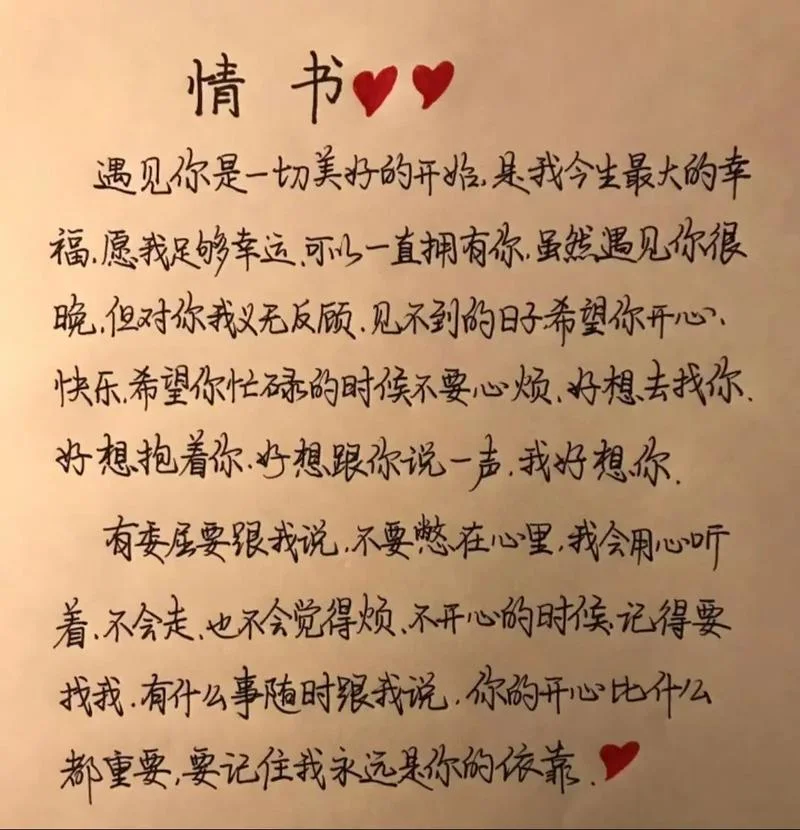 情书
遇见你是一切美好的开始,是我今生最大的幸
福,愿我足够幸运,可以一直拥有你,虽然遇见你很
晚,但对你我义无反顾,见不到的日子希望你开心、
快乐,希望你忙碌的时候不要心烦,好想去找你.
好想抱着你,好想跟你说一声,我好想你.
有委屈要跟我说,不要憋在心里,我会用心听
着,不会走,也不会觉得烦,不开心的时候,记得要
找我,有什么事随时跟我说,你的开心比什么
都重要,要记住我永远是你的依靠.